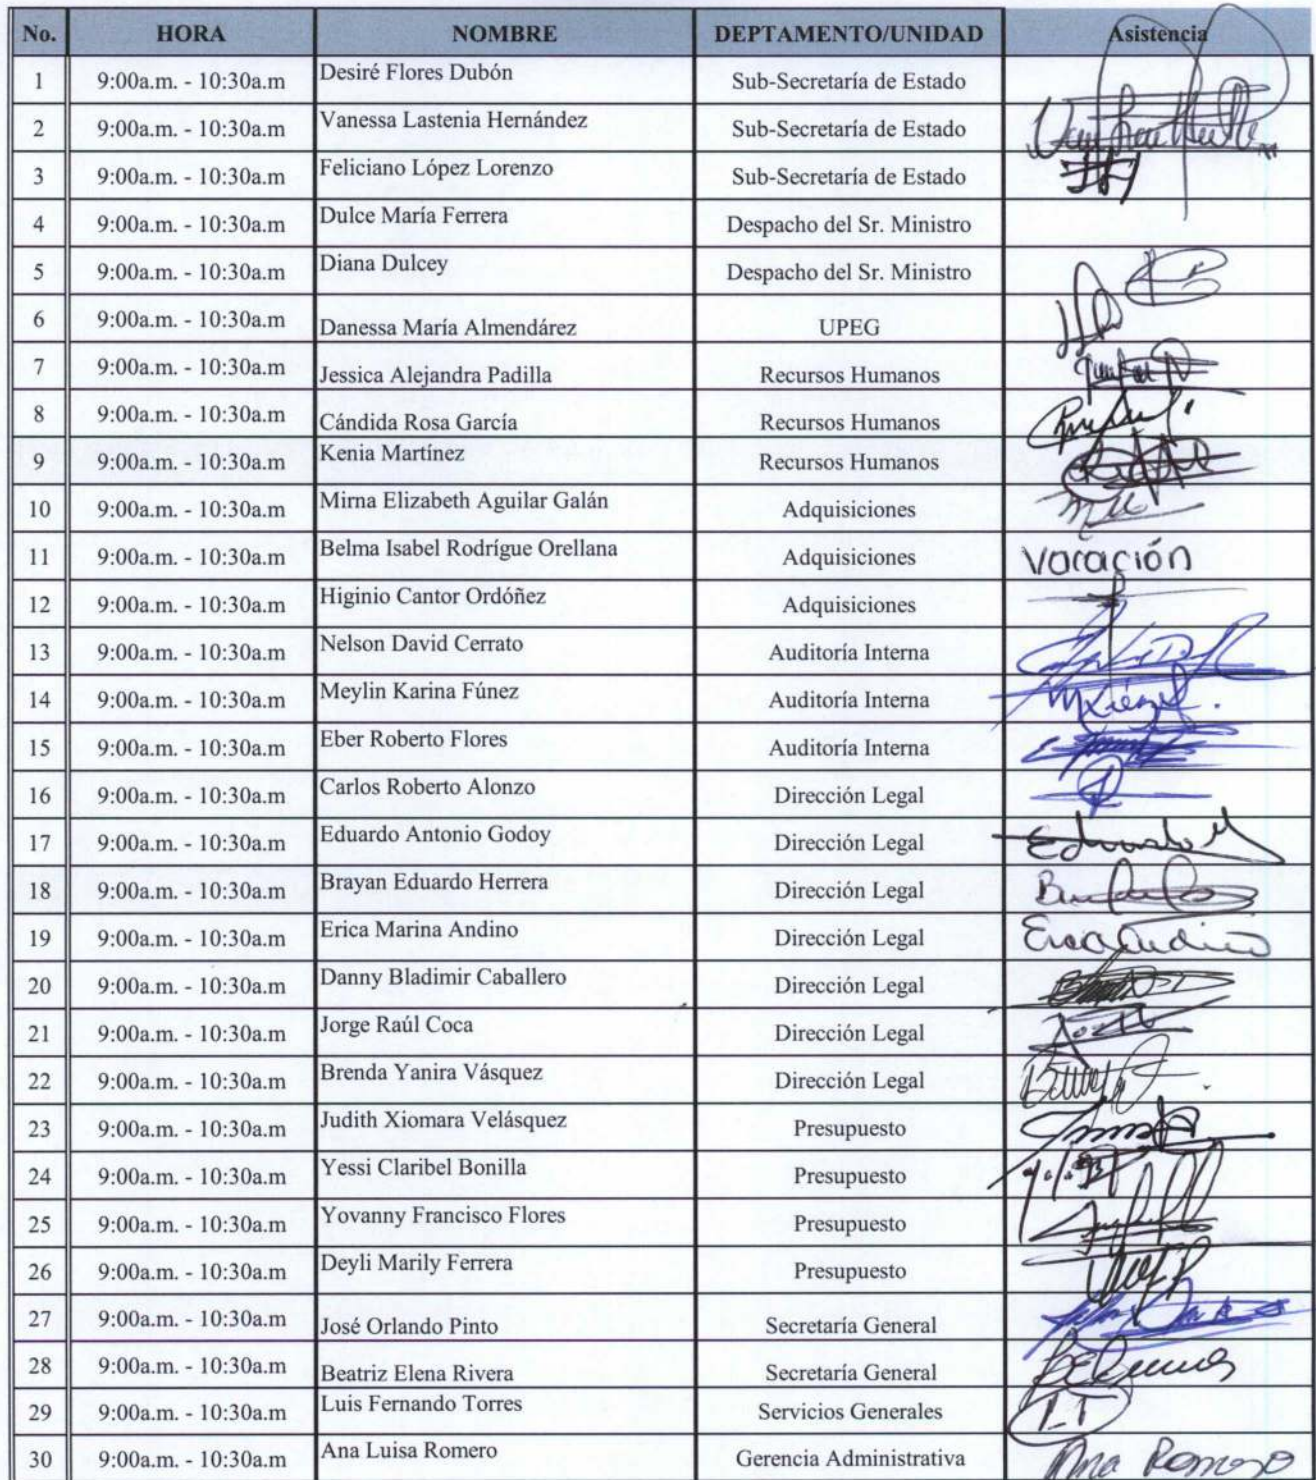 No. HORA NOMBRE DEPTAMENTO/UNIDAD Asistencia
1 9:00a.m. - 10:30a.m Desiré Flores Dubón Sub-Secretaría de Estado
2 9:00a.m. - 10:30a.m Vanessa Lastenia Hernández Sub-Secretaría de Estado
3 9:00a.m. - 10:30a.m Feliciano López Lorenzo Sub-Secretaría de Estado
4 9:00a.m. - 10:30a.m Dulce María Ferrera Despacho del Sr. Ministro
5 9:00a.m. - 10:30a.m Diana Dulcey Despacho del Sr. Ministro
6 9:00a.m. - 10:30a.m Danessa María Almendárez UPEG
7 9:00a.m. - 10:30a.m Jessica Alejandra Padilla Recursos Humanos
8 9:00a.m. - 10:30a.m Cándida Rosa García Recursos Humanos
9 9:00a.m. - 10:30a.m Kenia Martínez Recursos Humanos
10 9:00a.m. - 10:30a.m Mirna Elizabeth Aguilar Galán Adquisiciones
11 9:00a.m. - 10:30a.m Belma Isabel Rodrígue Orellana Adquisiciones Vacación
12 9:00a.m. - 10:30a.m Higinio Cantor Ordóñez Adquisiciones
13 9:00a.m. - 10:30a.m Nelson David Cerrato Auditoría Interna
14 9:00a.m. - 10:30a.m Meylin Karina Fúnez Auditoría Interna
15 9:00a.m. - 10:30a.m Eber Roberto Flores Auditoría Interna
16 9:00a.m. - 10:30a.m Carlos Roberto Alonzo Dirección Legal
17 9:00a.m. - 10:30a.m Eduardo Antonio Godoy Dirección Legal
18 9:00a.m. - 10:30a.m Brayan Eduardo Herrera Dirección Legal
19 9:00a.m. - 10:30a.m Erica Marina Andino Dirección Legal
20 9:00a.m. - 10:30a.m Danny Bladimir Caballero Dirección Legal
21 9:00a.m. - 10:30a.m Jorge Raúl Coca Dirección Legal
22 9:00a.m. - 10:30a.m Brenda Yanira Vásquez Dirección Legal
23 9:00a.m. - 10:30a.m Judith Xiomara Velásquez Presupuesto
24 9:00a.m. - 10:30a.m Yessi Claribel Bonilla Presupuesto
25 9:00a.m. - 10:30a.m Yovanny Francisco Flores Presupuesto
26 9:00a.m. - 10:30a.m Deyli Marily Ferrera Presupuesto
27 9:00a.m. - 10:30a.m José Orlando Pinto Secretaría General
28 9:00a.m. - 10:30a.m Beatriz Elena Rivera Secretaría General
29 9:00a.m. - 10:30a.m Luis Fernando Torres Servicios Generales LT
30 9:00a.m. - 10:30a.m Ana Luisa Romero Gerencia Administrativa Ana Romero